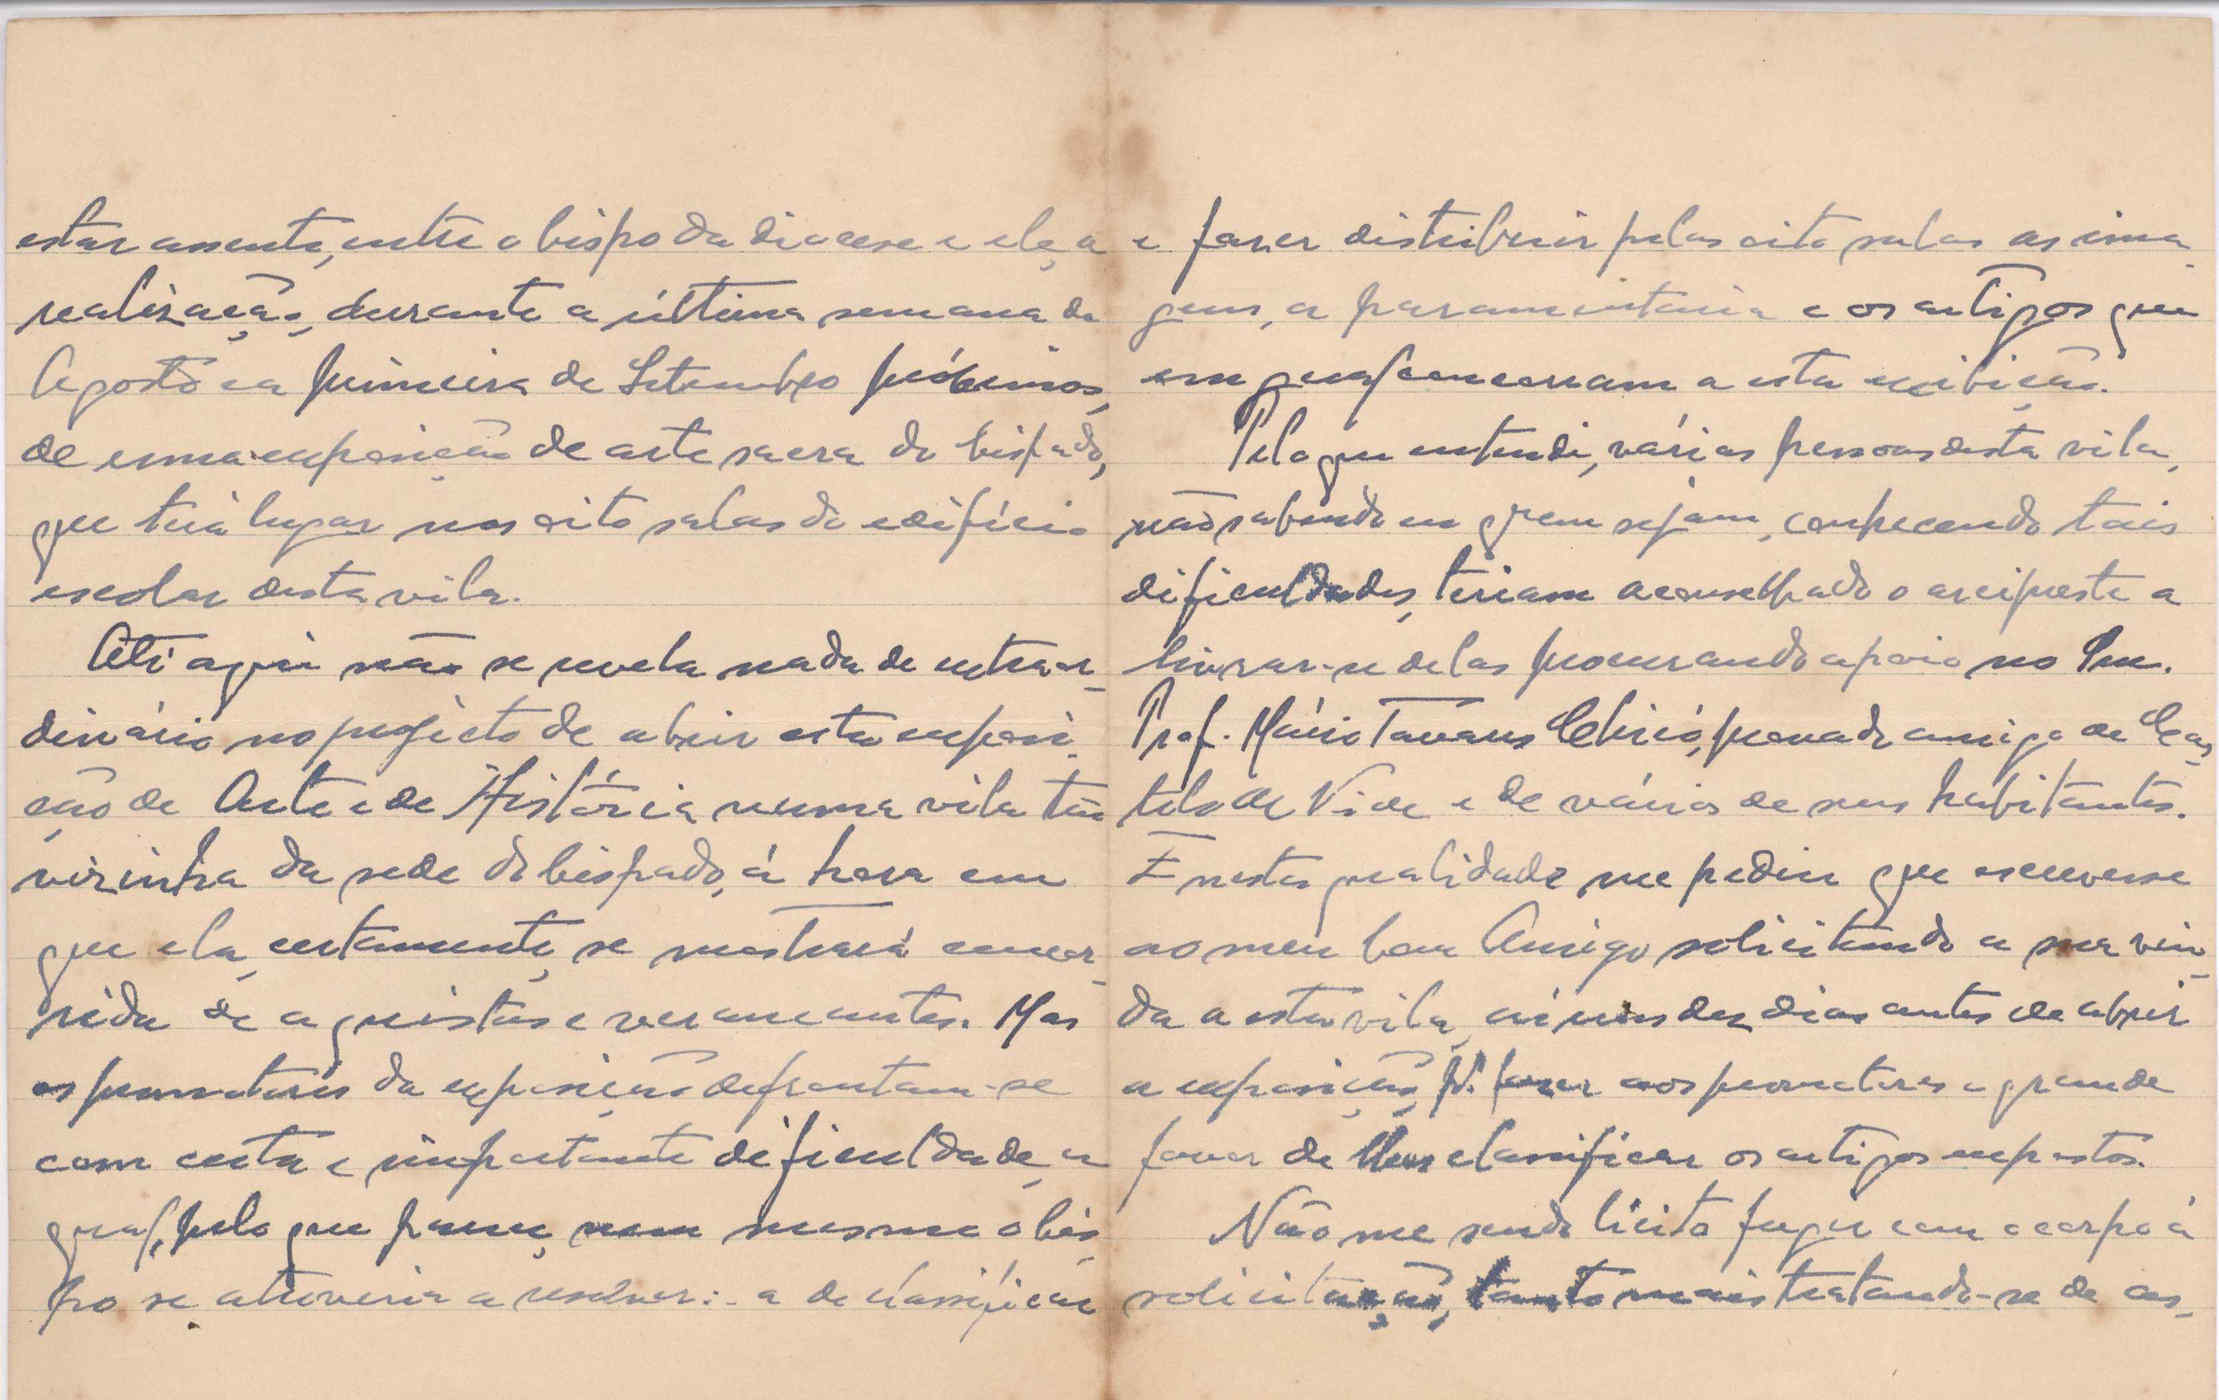 estar assente, entre o bispo da diocese e ele, a
realização, durante a última semana de
Agosto e a primeira de Setembro próximos,
de uma exposição de arte sacra do bispado,
que terá lugar nas oito salas do edifício
escolar desta vila.
Até aqui não se revela nada de extraor-
dinário no projecto de abrir esta exposi-
ção de Arte e de História numa vila tão
vizinha da sede do bispado, á hora em
que ela, certamente, se mostrará concor-
rida de aquistas e veraneantes. Mas
os promotores da exposição defrontam-se
com certa e importante dificuldade, a
qual, pelo que parece, nem mesmo o bis-
po se atreveria a resolver: - a de classificar
e fazer distribuir pelas oito salas as ima-
gens, a paramentaria e os artigos que
em geral concorram a esta exibição.
Pelo que entendi, várias pessoas desta vila,
não sabendo eu quem sejam, conhecendo tais
dificuldades, teriam aconselhado o arcipreste a
livrar-se delas procurando apoio no Snr.
Prof. Mário Tavares Chicó, provado amigo de Cas-
telo de Vide e de vários de seus habitantes.
E nesta qualidade me pediu que escrevesse
ao meu bom Amigo solicitando a sua vin-
da a esta vila, aí uns dez dias antes de abrir
a exposição, p.ª fazer aos promotores o grande
favor de lhes classificar os artigos expostos.
Não me sendo lícito fugir com o corpo á
solicitação, tanto mais tratando-se de as-